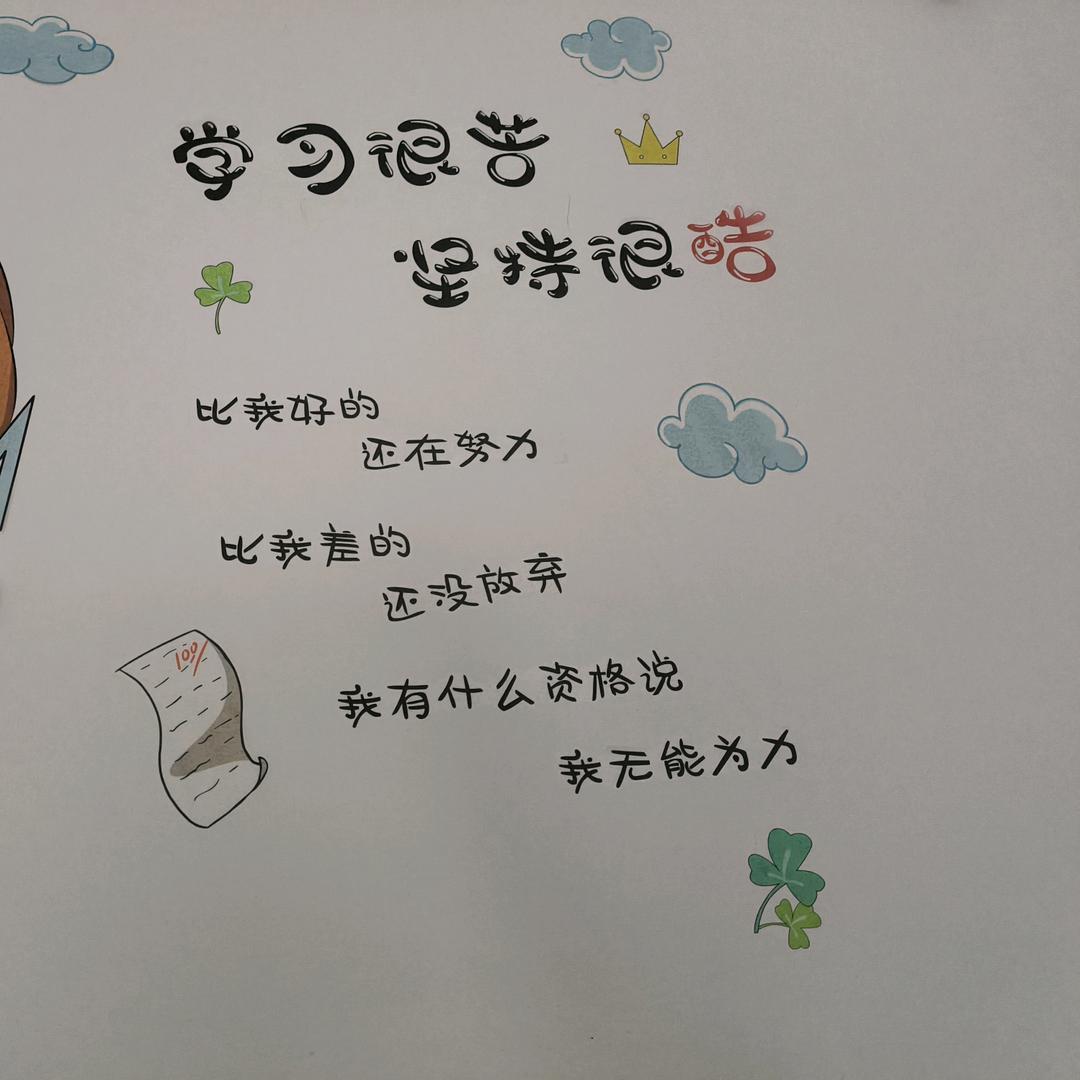 学习很苦
坚持很酷
比我好的
还在努力
比我差的
还没放弃
100
我有什么资格说
我无能为力